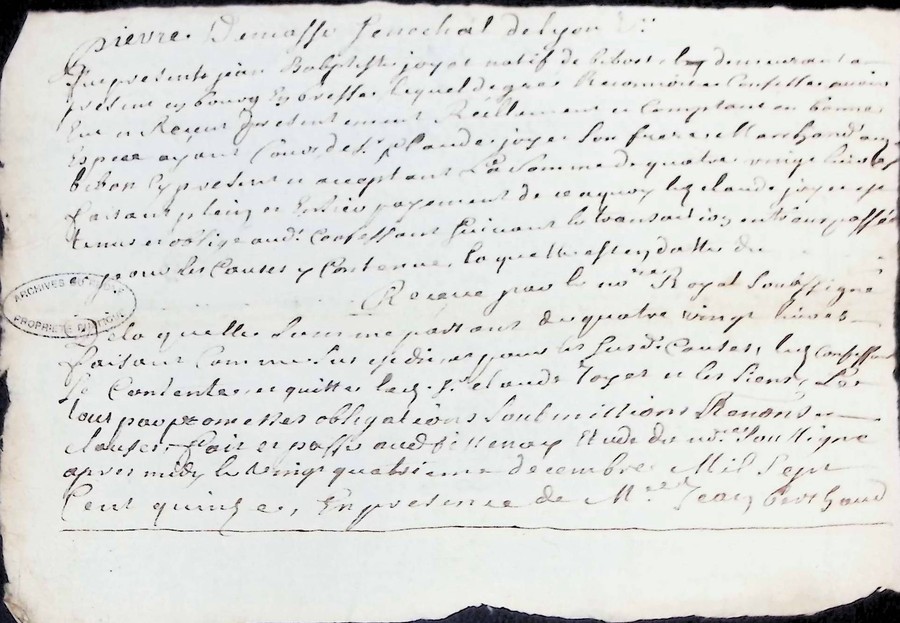 pierre Demasso Senechal de lyon
Fut present jean Baptiste joyet natif de bibost et demeurant a
present en bourg en bresse lequel de gré a Reconneu et Confessé avoir
Eut et Receut presentement Réellement et Comptant en bonnes
Espece ayant Cours de Sr Claude joyet Son frere Marchand au
bibost Cy present et acceptant La Somme de quatre vingt livres
faisant plein et Entier payement de ce a quoy led claude joyet est
tenus et obligé aud. Confessant Suivant la transaction entr'eux passée
pour les Causes y Contenue laquelle est en datte du
Receue par le nre Royal Soussigné
De la quelle Somme partant de quatre vingt livres
faisant Comme dessus et pour les Susd. Causes, led Confessant
Se Contente et quitte led. Sr claude Joyet et les Siens,
tout par promesses obligations Soubmissions Renons et
clauses, fait et passé aud Etude du nre Soussigné
apres midy le vingt quatrieme decembre Mil Sept
Cent quinze, En presence de Mre Jean berthaud
ARCHIVES DU
PROPRIETE PUBLIQUE